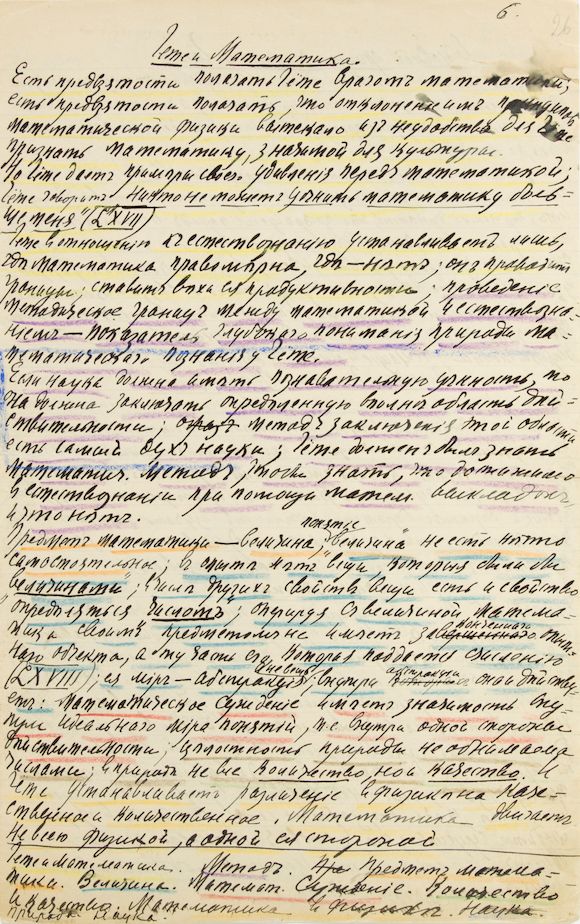 6.
26
Гете и Математика.
Есть предвзятости полагать Гёте врагомъ математики;
есть предвзятости полагать, что отклоненіе имъ принциповъ
математической физики вытекало изъ неудобства для Гёте
признать математику, значимой для культуры.
Но Гёте даетъ примѣры своего удивленія передъ математикой;
Гёте говоритъ „никто не можетъ цѣнить математику боль-
ше меня" (LXVII)
Гёте въ отношеніи къ естествознанію устанавливаетъ лишь,
гдѣ математика правомѣрна, гдѣ — нѣтъ; онъ проводитъ
границы; ставитъ вехи ея продуктивности; проведеніе
методическое границъ между математикой и естествозна-
ніемъ — показатель глубокаго пониманія природы ма-
тематическаго познанія у Гёте.
Если наука должна имѣть познавательную цѣнность, то
она должна заключать опредѣленную область дѣй-
ствительности; методъ заключенія этой области
есть самый духъ науки; Гёте долженъ былъ знать
математич. методъ, чтобы знать, что достижимо
въ естествознаніи при помощи матем. выкладокъ
и что нѣтъ.
понятіе
Предметъ математики — величина; „величина" не есть нѣчто
самостоятельное; въ опытѣ нѣтъ вещи, которыя были бы
„величинами"; въ числѣ другихъ свойствъ вещи есть и свойство
„опредѣляться числомъ"; оперируя съ величиной матема-
тика своимъ предметомъ не имѣетъ законченнаго
наго объекта, а ту часть его, которая поддается счисленію
(LXVIII); ея міръ — абстракція; внутри абстракціи она дѣйству-
етъ. Математическое сужденіе имѣетъ значимость вну-
три идеальнаго міра понятій, т.е. внутри одной стороны
дѣйствительности; цѣлостность природы не обнимаема
числами; въ природѣ не все количество, но и качество. И
Гёте устанавливаетъ различеніе въ физикѣ на каче-
ственное и количественное. Математика
не всею физикой, а одной ея стороной
Гете и математика. Методъ. Предметъ матема-
тики. Величина. Математ. Сужденіе. Количество
и качество. Математика и физика. Наука.
Природа. Наука.